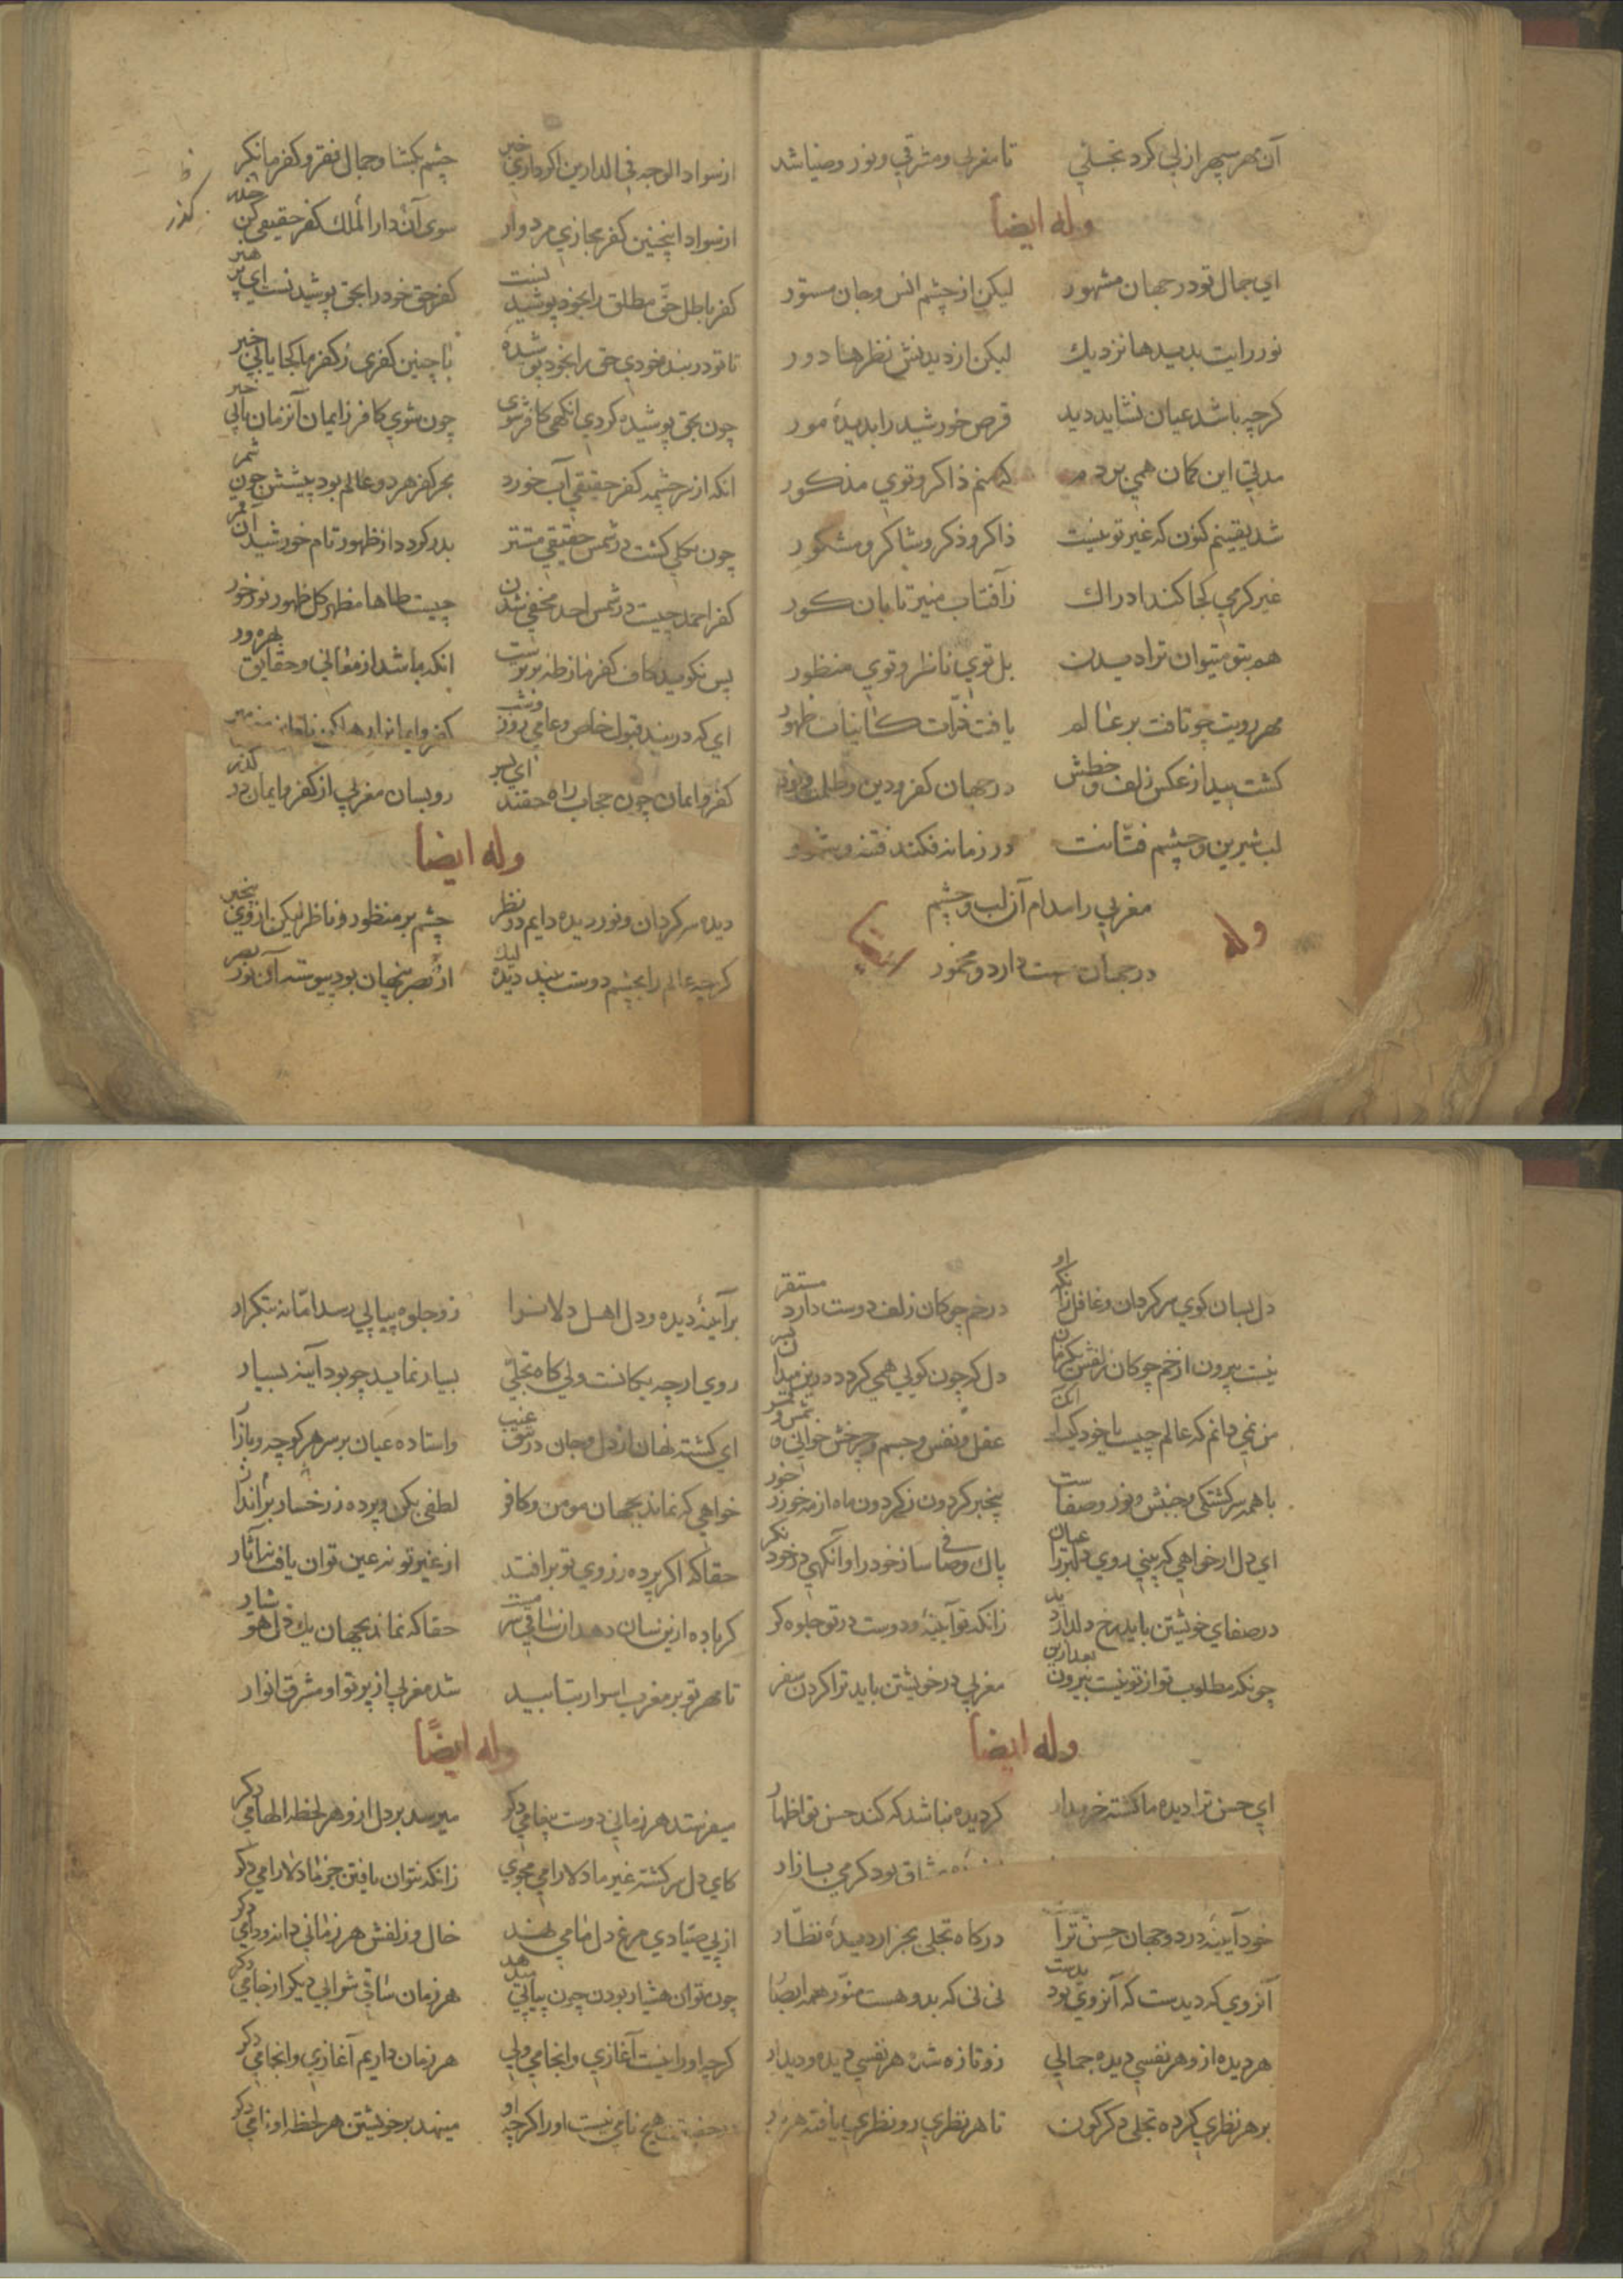 آن مهر سپهر ازلی کرد تجلی تا مغربی و مشرقی و نور و ضیا شد
وله ایضا
ای جمال تو در جهان مشهور لیکن از چشم انس و جان مستور
نور رایت بدیدها نزدیک لیکن از دیدنش نظرها دور
کرچه باشد عیان نشاید دید قرص خورشید را بدیدهٔ مور
مدتی این کمان همی بردم که منم ذاکر و توی مذکور
شد یقینم کنون که غیر تو نیست ذاکر و ذکر و شاکر و مشکور
غیر کرمی کجا کند ادراک ز آفتاب منیر تابان کور
هم بتو میتوان ترا دیدن بل توی ناظر و توی منظور
مهر رویت چو تافت بر عالم یافت ذرات کائنات ظهور
کشت پیدا ز عکس زلف و خطش در جهان کفر و دین و ظلمت و نور
لب شیرین و چشم فتانت در زمانه فکند فتنه و شور
مغربی را مدام آن لب و چشم
در جهان مست دارد و مخمور
وله ایضا
از سواد الوجه فی الدارین اکر داری خبر چشم بکشا و جمال فقر و کفر ما نکر
از سواد اینچنین کفر مجازی مردوار سوی آن دار الملک کفر حقیقی کن حذر
کذر
کفر باطل حق مطلق را بخود پوشیدنست کفر حق خود را بحق پوشیدنست ای پر هنر
تا تو در بند خودی حق را بخود پوشیدهٔ با چنین کفری ز کفر ما کجا یابی خبر
چون بحق پوشیده کردی انکهی کافر شوی چون شوی کافر ز ایمان آنزمان یابی خبر
انکه از سرچشمه کفر حقیقی آب خورد بحر کفر هر دو عالم بود پیشش چون شمر
چون بکلی کشت در شمس حقیقی مستتر بدر کردد از ظهور تام خورشید آن قمر
کفر احمد چیست در شمس احد مخفی شدن چیست طاها مظهر کل ظهور نور خور
پس نکوید کاف کفر ما ز طه برترست انکه باشد از معانی و حقایق بهره ور
ای که در بند قبول خاص و عامی روز و شب کفر و ایمانرا رها کن
کفر و ایمان چون حجاب راه حقند ای پسر رو بسان مغربی از کفر و ایمان در کذر
وله ایضا
دیده سرکردان و نور دیده دایم در نظر چشم بر منظور و ناظر لیکن از وی بیخبر
کرچه عالم را بچشم دوست بیند دیده لیک از بصر پنهان بود پیوسته آن نور بصر
دل بسان کوی سرکردان و غافل زانکه او در خم چوکان زلف دوست دارد مستقر
نیست بیرون از خم چوکان زلفش یکزمان دل که چون کویی همی کردد درین میدان بسر
من نمی دانم که عالم چیست یا خود کیست آن عقل و نفس و جسم و چرخش خوانی و شمس و قمر
با همه سرکشتکی و جنبش و نور و صفاست بیخبر کردون ز کردون ماه از مه خور ز خور
ای دل ار خواهی که بینی روی دلبر را عیان پاک و صافی ساز خود را و آنکهی در خود نکر
در صفای خویشتن باید رخ دلدار دید زانکه تو آیینهٔ و دوست در تو جلوه کر
چونکه مطلوب تو از تو نیست بیرون بعد ازین مغربی در خویشتن باید ترا کردن سفر
وله ایضا
ای حسن ترا دیده ما کشته خریدار کر دیده نباشد که کند حسن تو اظهار
مشتاق بود کرمی بازار
خود آیینهٔ در دو جهان حسن ترا در کاه تجلی بجز از دیدهٔ نظار
آنروی که دیدست که آنروی بدیدست نی نی که بدو هست منور همه ابصار
هر دیده از و هر نفسی دیده جمالی زو تازه شده هر نفسی دیده و دیدار
بر هر نظری کرده تجلی دکرکون تا هر نظری زو نظری یافته هر بار
بر آیینهٔ دیده و دل اهل دلانرا زو جلوه پیاپی رسد اما نه بتکرار
روی ارچه یکانست ولی کاه تجلی بسیار نماید چو بود آینه بسیار
ای کشته نهان از دل و جان در تتق غیب و استاده عیان بر سر هر کوچه و بازار
خواهی که نماند بجهان مومن و کافر لطفی بکن و پرده ز رخسار برانداز
حقا که اکر پرده ز روی تو برافتد از غیر تو نه عین توان یافت نه آثار
کر باده ازین سان دهد آن ساقی سرمست حقا که نماند بجهان یک دل هشیار
تا مهر تو بر مغرب اسرار بتابید شد مغربی از پرتو او مشرق انوار
وله ایضًا
میفرستد هر زمانی دوست پیغامی دکر میرسد بر دل ازو هر لحظه الهامی دکر
کای دل سرکشته غیر ما دلارامی مجوی زانکه نتوان یافتن جز ما دلارامی دکر
از پی صیادی مرغ دل ما می نهند خال و زلفش هر زمانی دانه و دامی دکر
چون توان هشیار بودن چون پیاپی میدهد هر زمان ساقی شرابی دیکر از جامی دکر
کرچه او را نیست آغازی و انجامی ولی هر زمان داریم آغازی و انجامی دکر
در حقیقت هیچ نامی نیست او را کرچه او مینهد بر خویشتن هر لحظه او نامی دکر